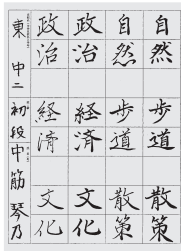 自然歩道散策
自然歩道散策
政治経済文化
政治経済文化
東 中二 初段 中筋琴乃